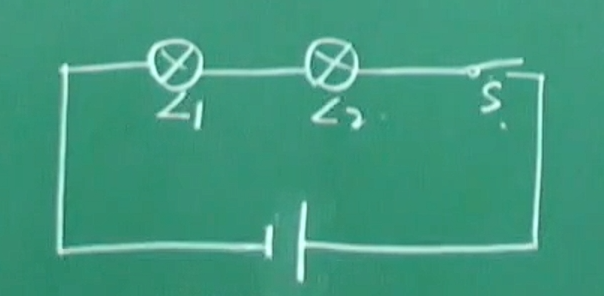 L1 L2 S